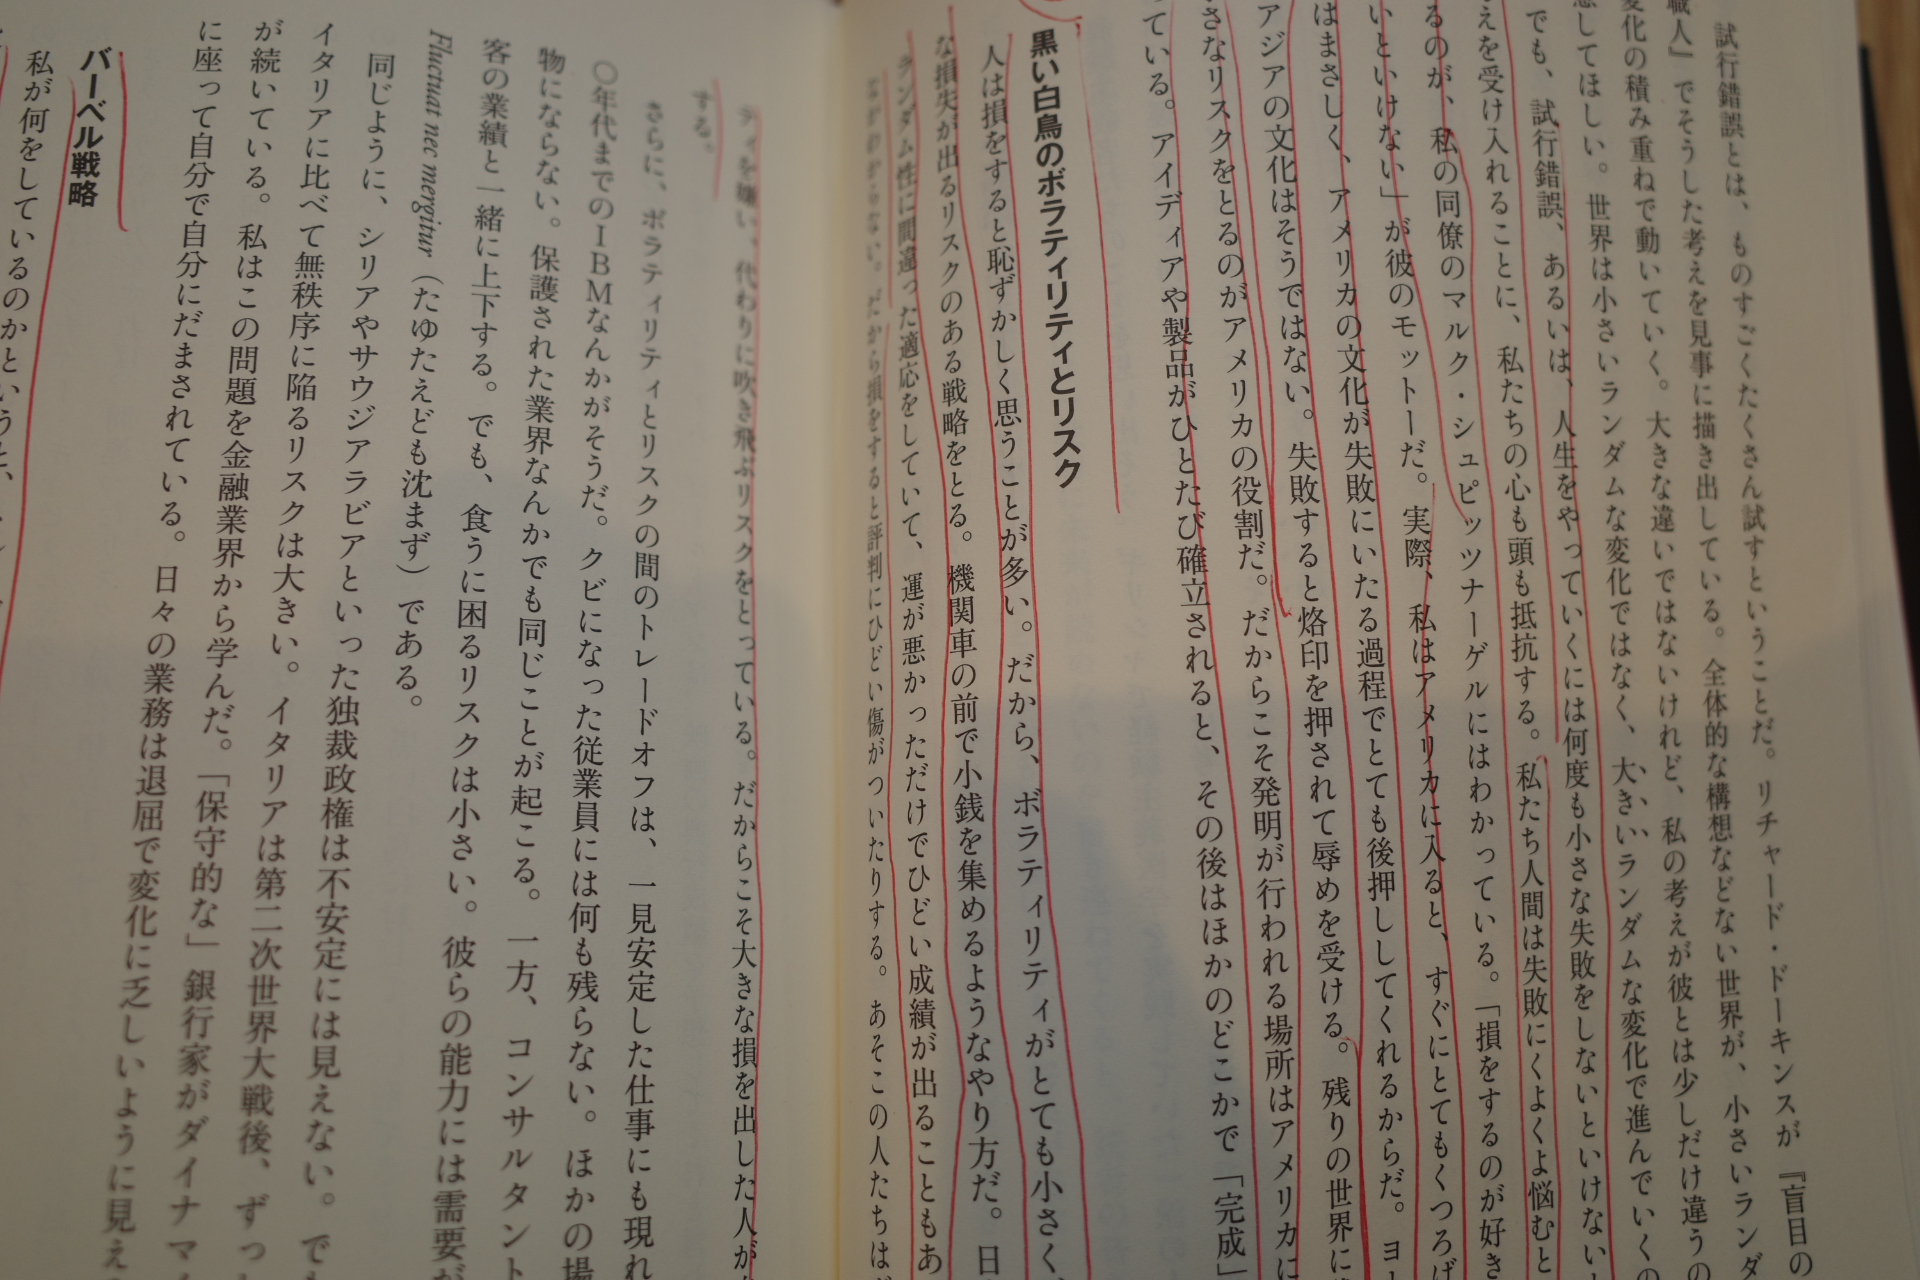 試行錯誤とは、ものすごくたくさん試すということだ。リチャード・ドーキンスが『盲目の
職人』でそうした考えを見事に描き出している。全体的な構想などない世界が、小さいランダ
変化の積み重ねで動いていく。大きな違いではないけれど、私の考えが彼とは少しだけ違うの
してほしい。世界は小さいランダムな変化ではなく、大きいランダムな変化で進んでいくの
でも、試行錯誤、あるいは、人生をやっていくには何度も小さな失敗をしないといけない
えを受け入れることに、私たちの心も頭も抵抗する。私たち人間は失敗にくよくよ悩むと
るのが、私の同僚のマルク・シュピッツナーゲルにはわかっている。「損をするのが好き
いといけない」が彼のモットーだ。実際、私はアメリカに入ると、すぐにとてもくつろげ
はまさしく、アメリカの文化が失敗にいたる過程でとても後押ししてくれるからだ。ヨ
アジアの文化はそうではない。失敗すると烙印を押されて辱めを受ける。残りの世界に
さなリスクをとるのがアメリカの役割だ。だからこそ発明が行われる場所はアメリカに
ている。アイディアや製品がひとたび確立されると、その後はほかのどこかで「完成」
黒い白鳥のボラティリティとリスク
人は損をすると恥ずかしく思うことが多い。だから、ボラティリティがとても小さく、
な損失が出るリスクのある戦略をとる。機関車の前で小銭を集めるようなやり方だ。日
ランダム性に間違った適応をしていて、運が悪かっただけでひどい成績が出ることもあ
だから損をすると評判にひどい傷がついたりする。あそこの人たちは
ティを嫌い、代わりに吹き飛ぶリスクをとっている。だからこそ大きな損を出した人が
する。
さらに、ボラティリティとリスクの間のトレードオフは、一見安定した仕事にも現れ
〇年代までのIBMなんかがそうだ。クビになった従業員には何も残らない。ほかの場
物にならない。保護された業界なんかでも同じことが起こる。一方、コンサルタント
客の業績と一緒に上下する。でも、食うに困るリスクは小さい。彼らの能力には需要が
Fluctuat nec mergitur（たゆたえども沈まず）である。
同じように、シリアやサウジアラビアといった独裁政権は不安定には見えない。で
イタリアに比べて無秩序に陥るリスクは大きい。イタリアは第二次世界大戦後、ずっ
が続いている。私はこの問題を金融業界から学んだ。「保守的な」銀行家がダイナマ
に座って自分で自分にだまされている。日々の業務は退屈で変化に乏しいように見え
バーベル戦略
私が何をしているのかというと、